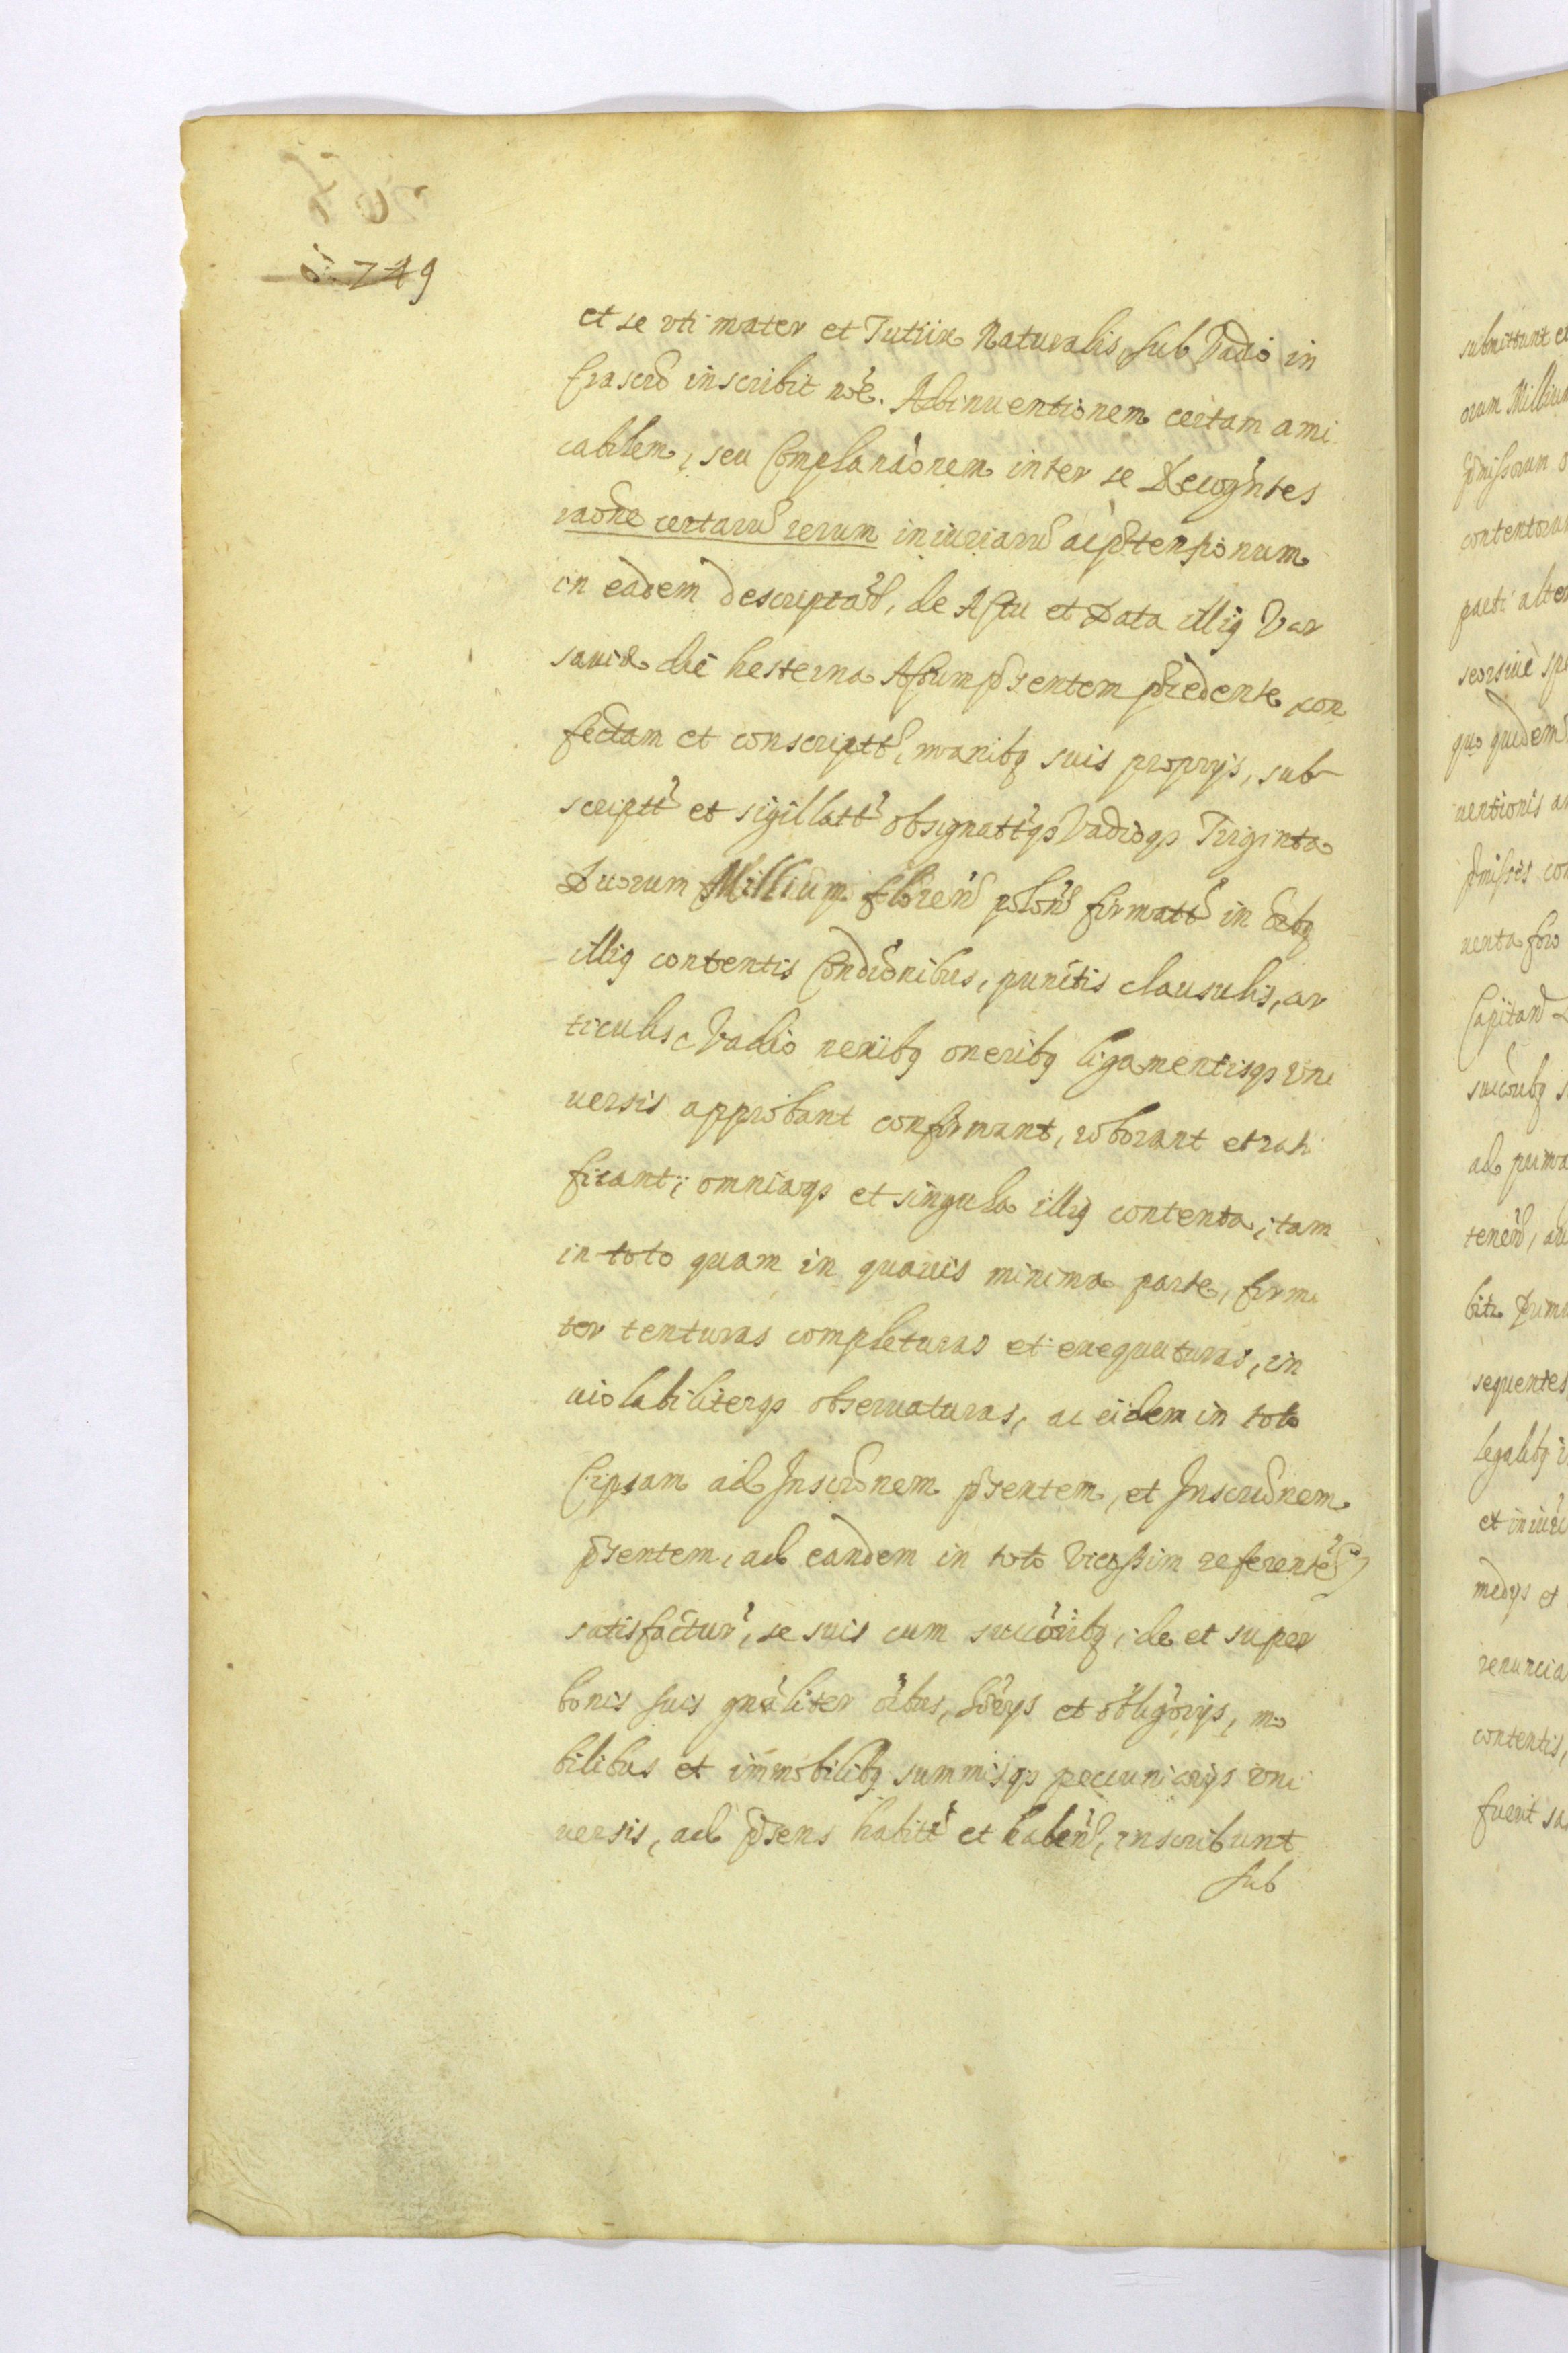 749
et se vti mater et Tutrix Naturalis sub Vadio in
frascrō inscribit nōē. Adinuentionem certam ami
cabilem, seu Complanãonem inter se Recogñtes
rãone certarū rerum iniuriarū ac p̄tensionum
in eadem descriptarū, de Actu et Data illiq Var
sauiæ die hesterna Actum p̄sentem p̄cedente con
fectam et conscriptā, manibq suis proprijs, sub
scriptā et sigillatā obsignatāqȝ Vadioqȝ Triginta
Duorum Millium floreñ poloñ firmatā in oībq
illiq contentis Condiõnibus, punctis clausulis, ar
ticulis Vadio nexibq oneribq ligamentisqȝ vni
uersis approbant confirmant, roborant et rati
ficant; omniaqȝ et singula illiq contenta, tam
in toto quam in quauis minima parte, firmi
ter tenturas completuras et exequuturas, in
uiolabiliterqȝ obseruaturas, ac eidem in toto
Eipsam ad Inscrõnem p̄sentem, et Inscrõnem
p̄sentem, ad eandem in toto vicissim referente
satisfactur, se suis cum succõribq, de et super
bonis suis gnãliter oībus, hdērijs et obligõrijs, mo
bilibus et immobilibq summisqȝ peccuniarijs vni
uersis, ad p̄sens habitī et habeñ, inscribunt
sub
submittunt
orum Millium
p̄missorum
parti
seorsiue
quo quidem
uentionis
p̄missis
uenta foro
Capitañ
succõribq
sequentes
legalibq
medijs et
contentis,
fuerit